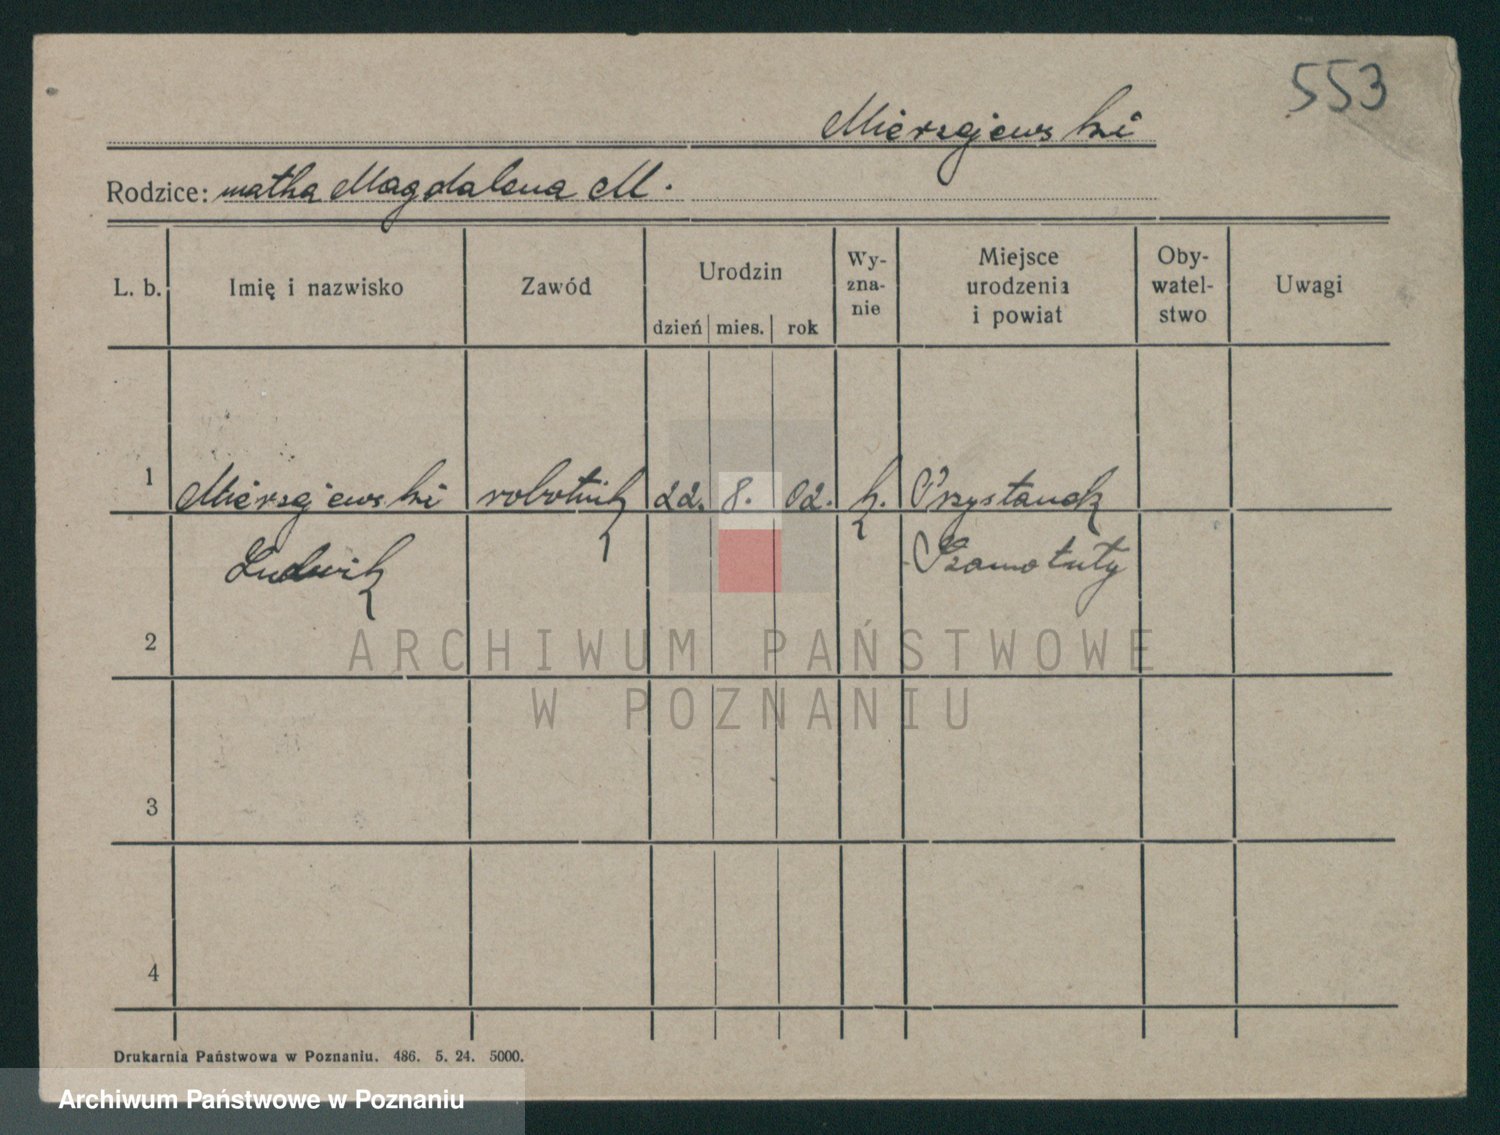 553
Mierzejewski
Rodzice: matka Magdalena M.
L. b. Imię i nazwisko Zawód Urodzin dzień mies. rok Wy-zna-nie Miejsce urodzenia i powiat Oby-watel-stwo Uwagi
1 Mierzejewski robotnik 22. 8. 02. k. Przystanek
Ludwik Szamotuły
2
ARCHIWUM PAŃSTWOWE
W POZNANIU
3
4
Drukarnia Państwowa w Poznaniu. 486. 5. 24. 5000.
Archiwum Państwowe w Poznaniu